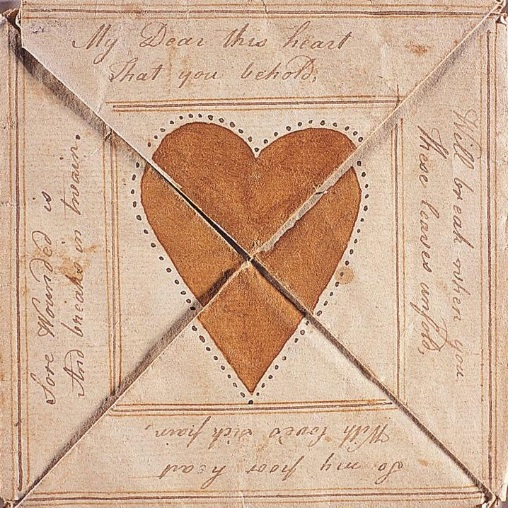 My Dear this heart
That you behold,
Will break when you
these leaves unfold,
So my poor heart
With love's sick pain,
Sore Wounded is
And breaks in twain.